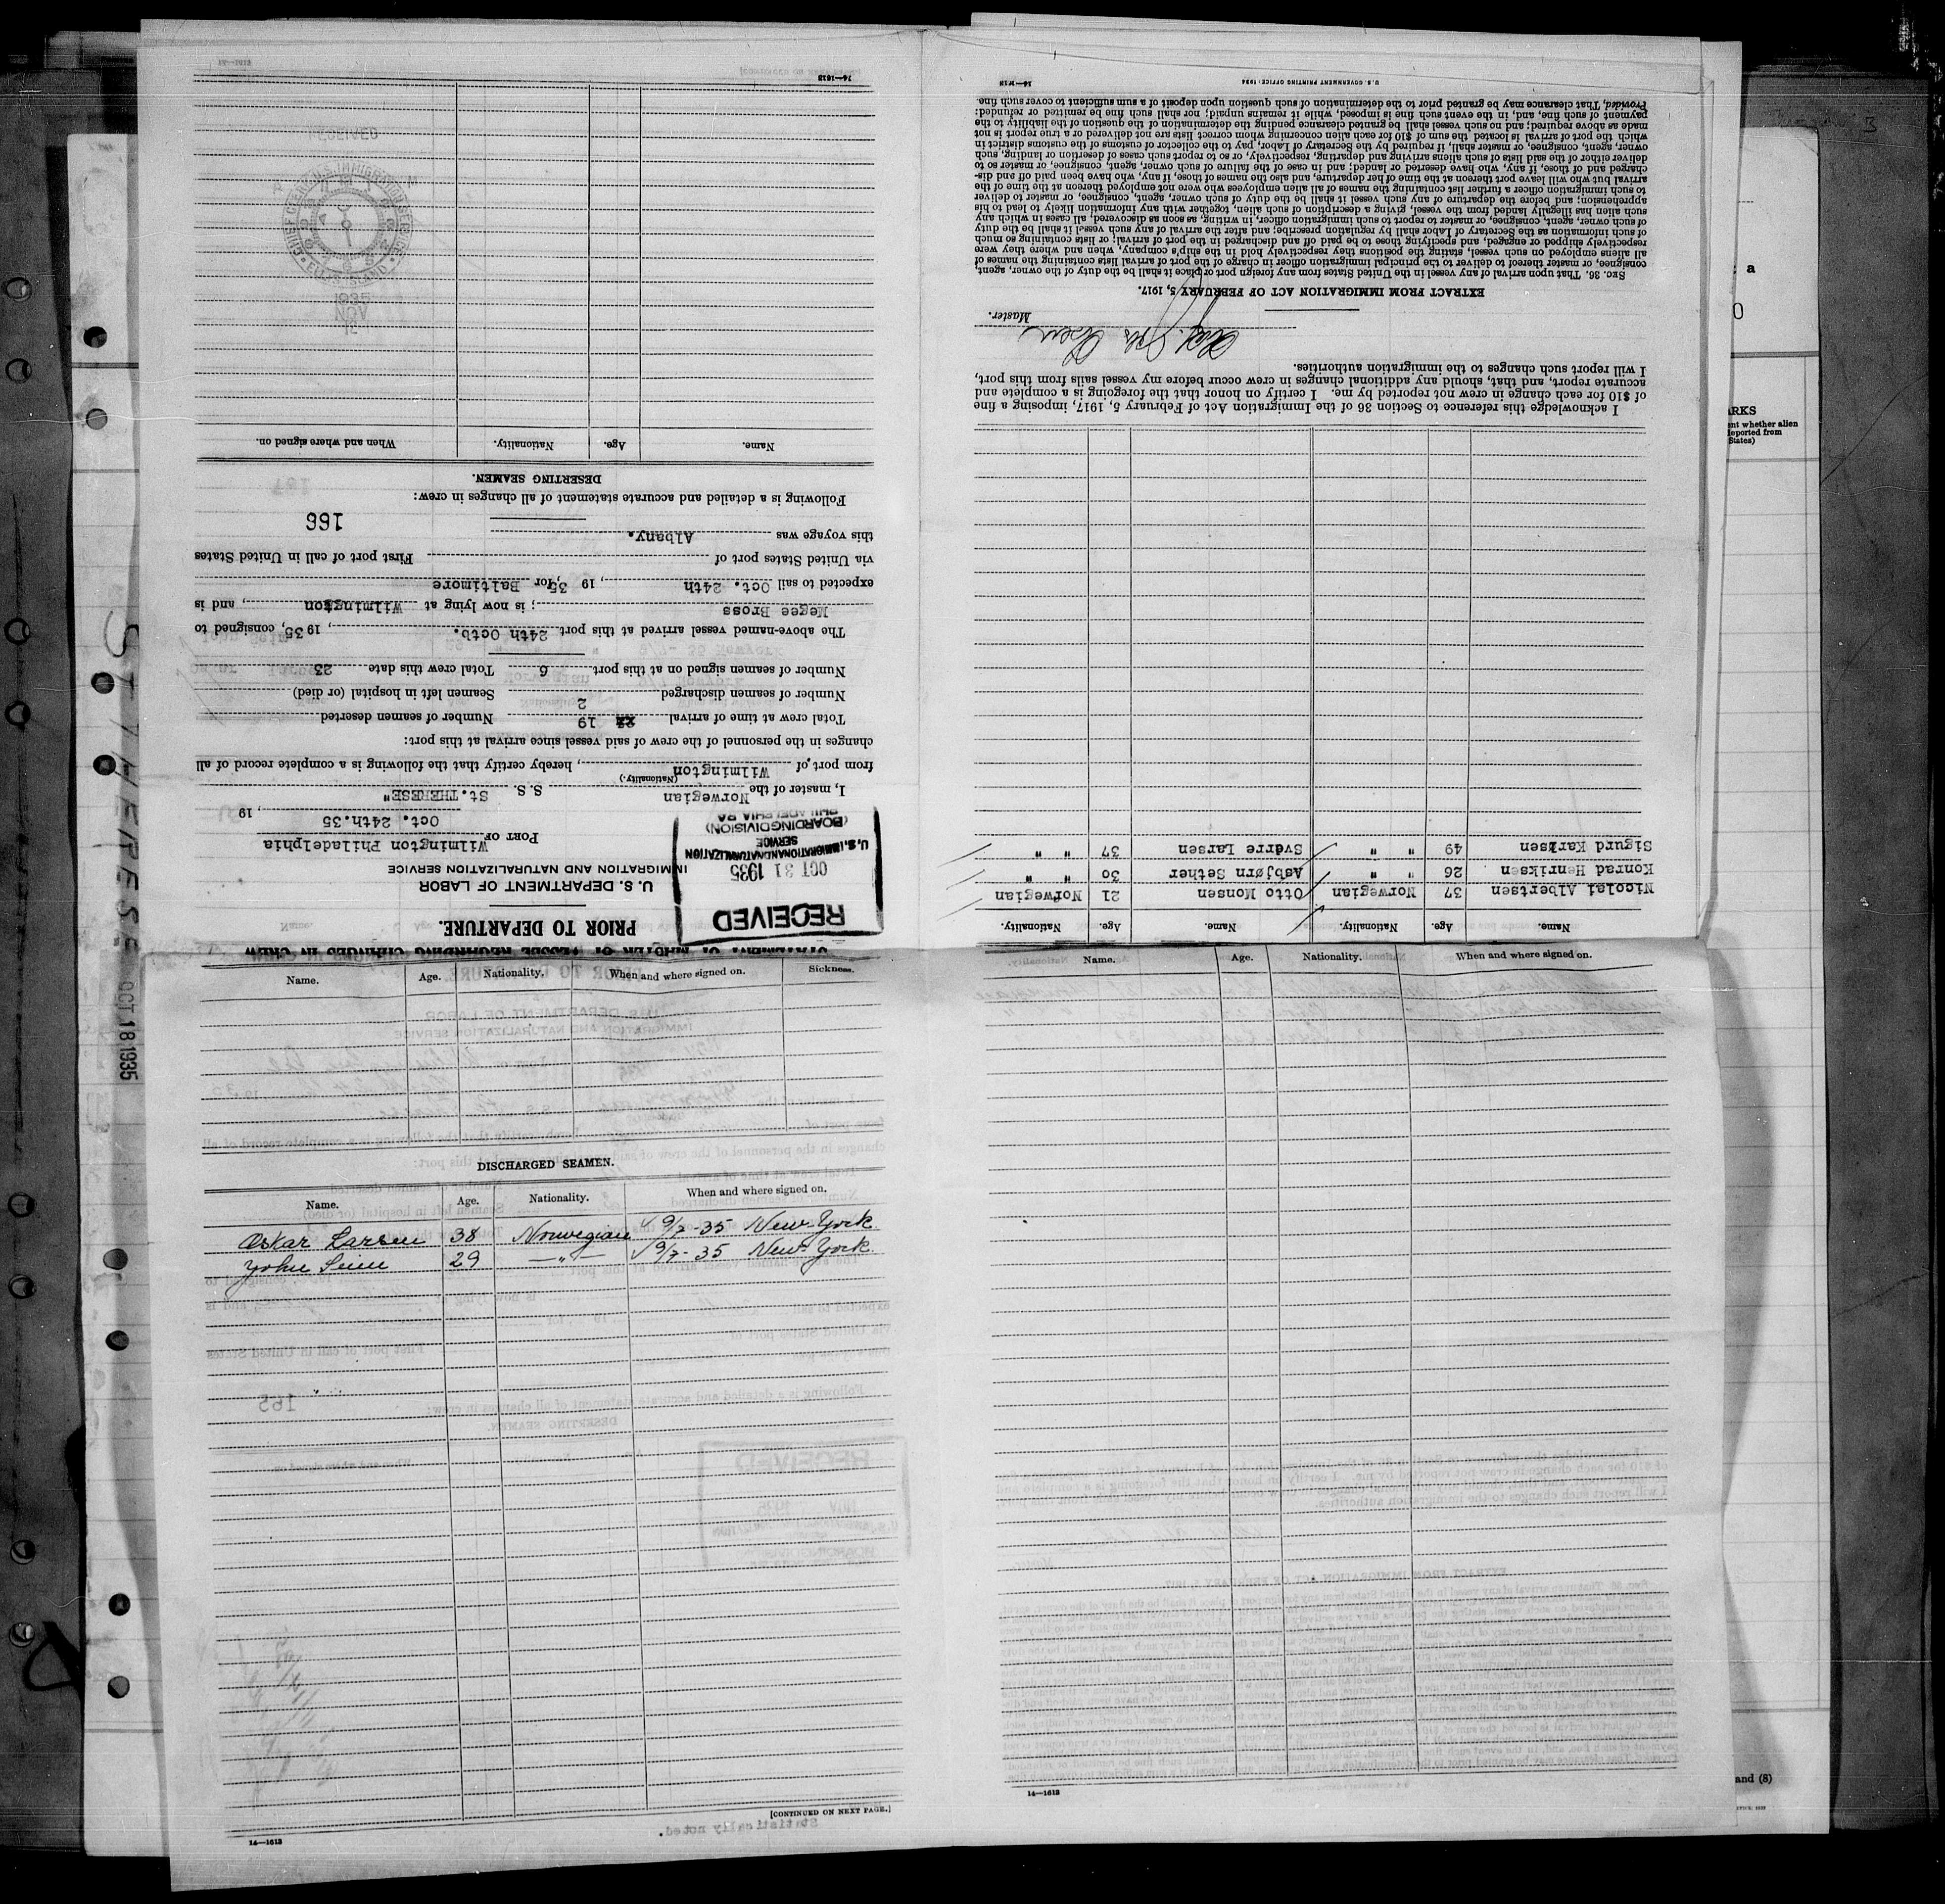 STATEMENT OF MASTER OF VESSEL REGARDING CHANGES IN CREW
PRIOR TO DEPARTURE.
U. S. DEPARTMENT OF LABOR
IMMIGRATION AND NATURALIZATION SERVICE
RECEIVED
OCT 31 1935
U.S. IMMIGRATION AND NATURALIZATION
SERVICE
(BOARDING DIVISION)
PHILADELPHIA PA
PORT OF Wilmington Philadelphia
Oct. 24th.35, 19
I, master of the Norwegian S. S. St. THERESE"
(Nationality.)
from port of Wilmington, hereby certify that the following is a complete record of all
changes in the personnel of the crew of said vessel since arrival at this port:
Total crew at time of arrival 19 Number of seamen deserted
Number of seamen discharged 2 Seamen left in hospital (or died)
Number of seamen signed on at this port 6 Total crew this date 23
The above-named vessel arrived at this port 24th Octb., 1935, consigned to
Megee Bross; is now lying at Wilmington, and is
expected to sail Oct. 24th, 19 35, for Baltimore
via United States port of First port of call in United States
this voyage was Albany.
166
Following is a detailed and accurate statement of all changes in crew:
DESERTING SEAMEN.
Name. Age. Nationality. When and where signed on.
14—1613
Name. Age. Nationality. When and where signed on. Sickness.
DISCHARGED SEAMEN.
Name. Age. Nationality. When and where signed on.
Oskar Larsen 38 Norwegian 9/7-35 New-York
29 —"— 9/7-35 New-York
[CONTINUED ON NEXT PAGE.]
Statistically noted.
14—1613
Name. Age. Nationality. When and where signed on.
14—1613
Name. Age. Nationality. Name. Age. Nationality.
Nicolai Albertsen 37 Norwegian Otto Monsen 21 Norwegian
Konrad Henriksen 26 " " Asbjørn Sether 30 " "
Sigurd Karlsen 49 " " Sverre Larsen 37 " "
I acknowledge this reference to Section 36 of the Immigration Act of February 5, 1917, imposing a fine
of $10 for each change in crew not reported by me. I certify on honor that the foregoing is a complete and
accurate report, and that, should any additional changes in crew occur before my vessel sails from this port,
I will report such changes to the immigration authorities.
Master.
EXTRACT FROM IMMIGRATION ACT OF FEBRUARY 5, 1917.
SEC. 36. That upon arrival of any vessel in the United States from any foreign port or place it shall be the duty of the owner, agent,
consignee, or master thereof to deliver to the principal immigration officer in charge of the port of arrival lists containing the names of
all aliens employed on such vessel, stating the positions they respectively hold in the ship's company, when and where they were
respectively shipped or engaged, and specifying those to be paid off and discharged in the port of arrival; or lists containing so much
of such information as the Secretary of Labor shall by regulation prescribe; and after the arrival of any such vessel it shall be the duty
of such owner, agent, consignee, or master to report to such immigration officer, in writing, as soon as discovered, all cases in which any
such alien has illegally landed from the vessel, giving a description of such alien, together with any information likely to lead to his
apprehension; and before the departure of any such vessel it shall be the duty of such owner, agent, consignee, or master to deliver
to such immigration officer a further list containing the names of all alien employees who were not employed thereon at the time of the
arrival but who will leave port thereon at the time of her departure, and also the names of those, if any, who have been paid off and dis-
charged and of those, if any, who have deserted or landed; and in case of the failure of such owner, agent, consignee, or master so to
deliver either of the said lists of such aliens arriving and departing, respectively, or so to report such cases of desertion or landing, such
owner, agent, consignee, or master shall, if required by the Secretary of Labor, pay to the collector of customs of the customs district in
which the port of arrival is located the sum of $10 for each alien concerning whom correct lists are not delivered or a true report is not
made as above required; and no such vessel shall be granted clearance pending the determination of the question of the liability to the
payment of such fine, and, in the event such fine is imposed, while it remains unpaid; nor shall such fine be remitted or refunded:
Provided, That clearance may be granted prior to the determination of such question upon deposit of a sum sufficient to cover such fine.
U. S. GOVERNMENT PRINTING OFFICE: 1934
RECEIVED
ELLIS ISLAND
1935
NOV
ST THERESE
OCT 18 1935
and (8)